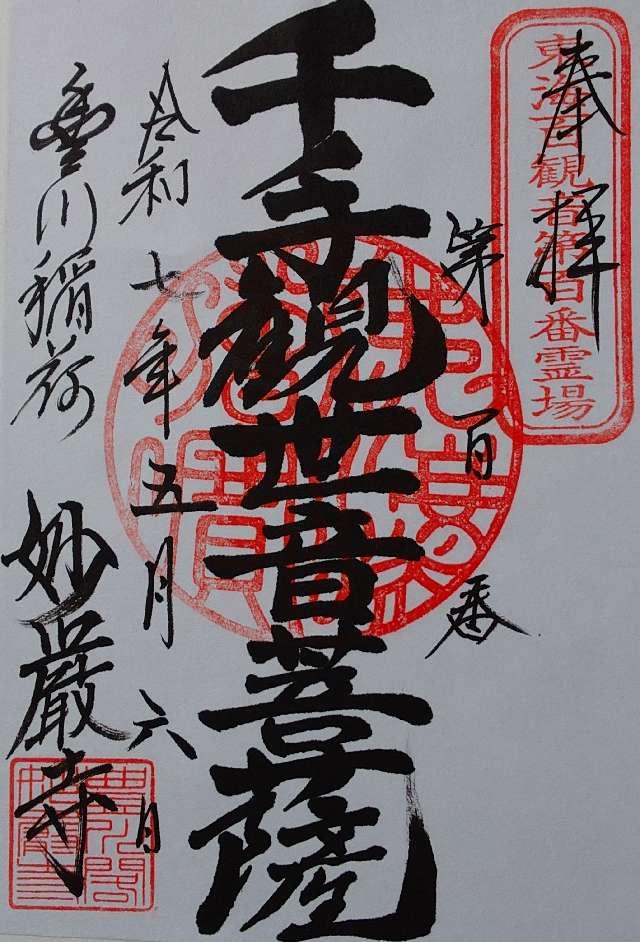 奉拝
東海百観音第百番霊場
第百番
千手観世音菩薩
令和七年五月六日
豊川稲荷
妙厳寺